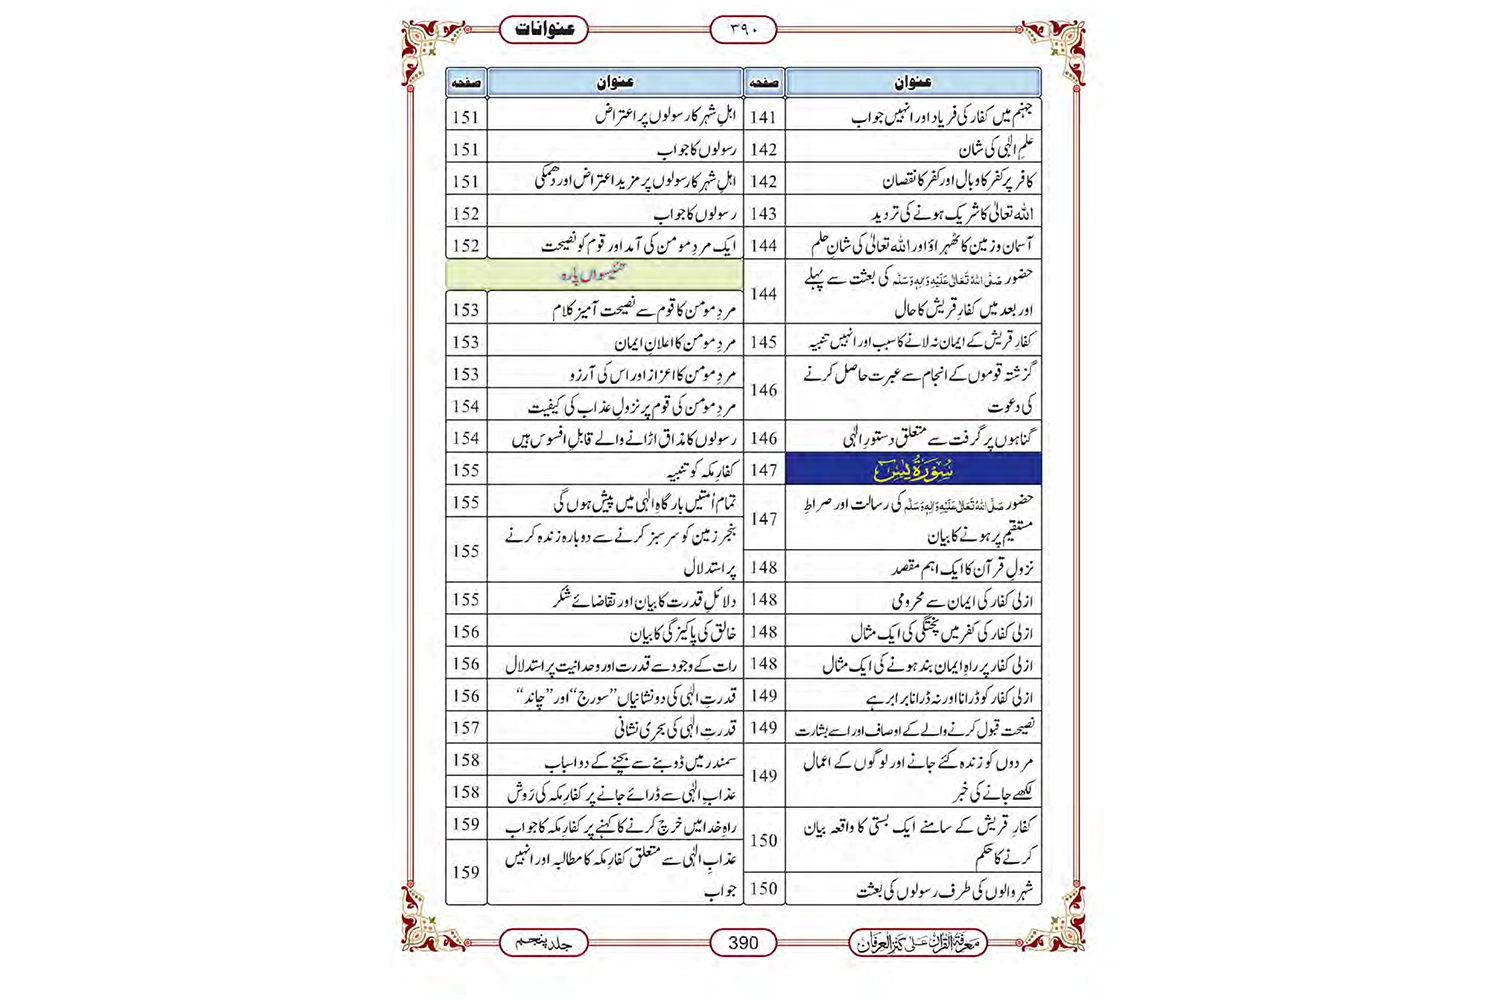 عنوانات
۳۹۰
عنوان
صفحہ
جہنم میں کفار کی فریاد اور انہیں جواب
141
علمِ الٰہی کی شان
142
کافر پر کفر کا وبال اور کفر کا نقصان
142
اللہ تعالیٰ کا شریک ہونے کی تردید
143
آسمان و زمین کا ٹھہراؤ اور اللہ تعالیٰ کی شانِ حلم
144
حضور صَلَّی اللہُ تَعَالٰی عَلَیْہِ وَاٰلِہٖ وَسَلَّم کی بعثت سے پہلے
اور بعد میں کفارِ قریش کا حال
144
کفارِ قریش کے ایمان نہ لانے کا سبب اور انہیں تنبیہ
145
گزشتہ قوموں کے انجام سے عبرت حاصل کرنے
کی دعوت
146
گناہوں پر گرفت سے متعلق دستورِ الٰہی
146
سُوْرَۃُ یٰسٓ
147
حضور صَلَّی اللہُ تَعَالٰی عَلَیْہِ وَاٰلِہٖ وَسَلَّم کی رسالت اور صراطِ
مستقیم پر ہونے کا بیان
147
نزولِ قرآن کا ایک اہم مقصد
148
ازلی کفار کی ایمان سے محرومی
148
ازلی کفار کی کفر میں پختگی کی ایک مثال
148
ازلی کفار پر راہِ ایمان بند ہونے کی ایک مثال
148
ازلی کفار کو ڈرانا اور نہ ڈرانا برابر ہے
149
نصیحت قبول کرنے والے کے اوصاف اور اسے بشارت
149
مردوں کو زندہ کئے جانے اور لوگوں کے اعمال
لکھے جانے کی خبر
149
کفارِ قریش کے سامنے ایک بستی کا واقعہ بیان
کرنے کا حکم
150
شہر والوں کی طرف رسولوں کی بعثت
150
عنوان
صفحہ
اہلِ شہر کا رسولوں پر اعتراض
151
رسولوں کا جواب
151
اہلِ شہر کا رسولوں پر مزید اعتراض اور دھمکی
151
رسولوں کا جواب
152
ایک مردِ مومن کی آمد اور قوم کو نصیحت
152
تئیسواں پارہ
مردِ مومن کا قوم سے نصیحت آمیز کلام
153
مردِ مومن کا اعلانِ ایمان
153
مردِ مومن کا اعزاز اور اس کی آرزو
153
مردِ مومن کی قوم پر نزولِ عذاب کی کیفیت
154
رسولوں کا مذاق اڑانے والے قابلِ افسوس ہیں
154
کفارِ مکہ کو تنبیہ
155
تمام اُمتیں بارگاہِ الٰہی میں پیش ہوں گی
155
بنجر زمین کو سرسبز کرنے سے دوبارہ زندہ کرنے
پر استدلال
155
دلائلِ قدرت کا بیان اور تقاضائے شکر
155
خالق کی پاکیزگی کا بیان
156
رات کے وجود سے قدرت اور وحدانیت پر استدلال
156
قدرتِ الٰہی کی دو نشانیاں ”سورج“ اور ”چاند“
156
قدرتِ الٰہی کی بحری نشانی
157
سمندر میں ڈوبنے سے بچنے کے دو اسباب
158
عذابِ الٰہی سے ڈرائے جانے پر کفارِ مکہ کی رَوِش
158
راہِ خدا میں خرچ کرنے کا کہنے پر کفارِ مکہ کا جواب
159
عذابِ الٰہی سے متعلق کفارِ مکہ کا مطالبہ اور انہیں
جواب
159
مَعْرِفَۃُ الْقُرْآن عَلٰی کَنْزُ الْعِرْفَان
390
جلد پنجم